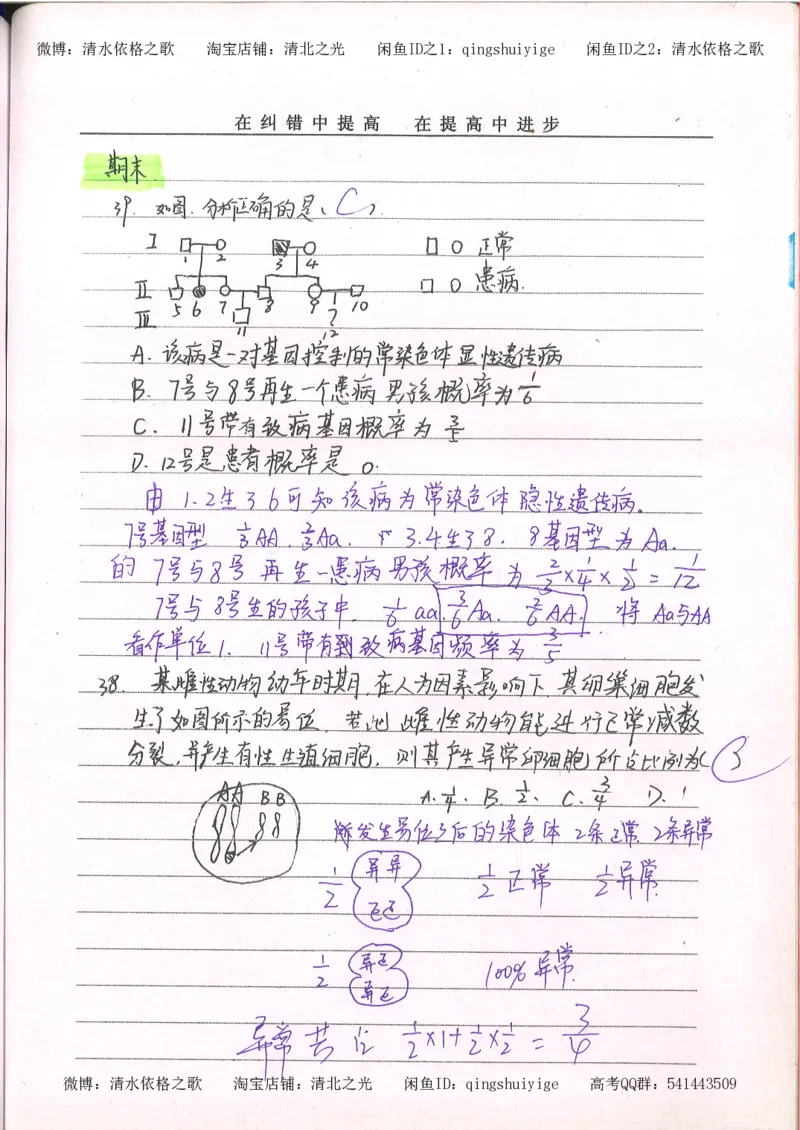 微博：清水依格之歌 淘宝店铺：清北之光 闲鱼ID之1：qingshuiyige 闲鱼ID之2：清水依格之歌
在纠错中提高 在提高中进步
期末
39. 如图.分析正确的是（C）.
I 1 2 3 4 □ ○ 正常
II 5 6 7 8 9 10 □ ○ 患病.
III 11 ? 12
A. 该病是一对基因控制的常染色体显性遗传病
B. 7号与8号再生一个患病男孩概率为1/6
C. 11号带有致病基因概率为3/5
D. 12号是患者概率是0.
由1.2生36可知该病为常染色体隐性遗传病.
7号基因型 1/3AA.2/3Aa. 3.4生38. 8基因型为Aa.
的7号与8号再生一患病男孩概率为2/3×1/4×1/2=1/12
7号与8号生的孩子中. 1/6aa. 3/6Aa. 2/6AA. 将Aa与AA
看作单位1. 11号带有到致病基因频率为3/5
38. 某雌性动物幼年时期.在人为因素影响下其卵巢细胞发
生了如图所示的易位. 若此雌性动物能进行正常减数
分裂.并产生有性生殖细胞. 则其产生异常卵细胞所占比例为（
A.1/4. B.1/2. C.3/4 D.1
AA BB
发生易位之后的染色体2条正常.2条异常
1/2 异异 正正 1/2正常 1/2异常.
1/2 异正 异正 100%异常.
异常共占 1/2×1+1/2×1/2=3/4
微博：清水依格之歌 淘宝店铺：清北之光 闲鱼ID：qingshuiyige 高考QQ群：541443509